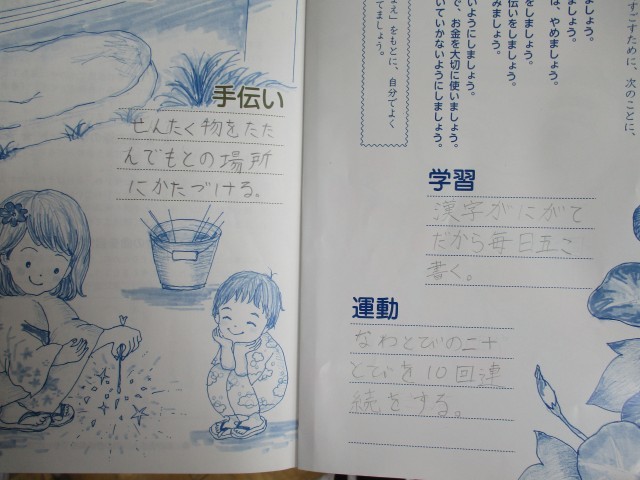 ましょう。
すごすために、次のことに、
ましょう。
は、やめましょう。
をしましょう。
伝いをしましょう。
みましょう。
いようにしましょう。
で、お金を大切に使いましょう。
いていかないようにしましょう。
え」をもとに、自分でよく
てましょう。
手伝い
せんたく物をたた
んでもとの場所
にかたづける。
学習
漢字がにがて
だから毎日五こ
書く。
運動
なわとびの二十
とびを10回連
続をする。